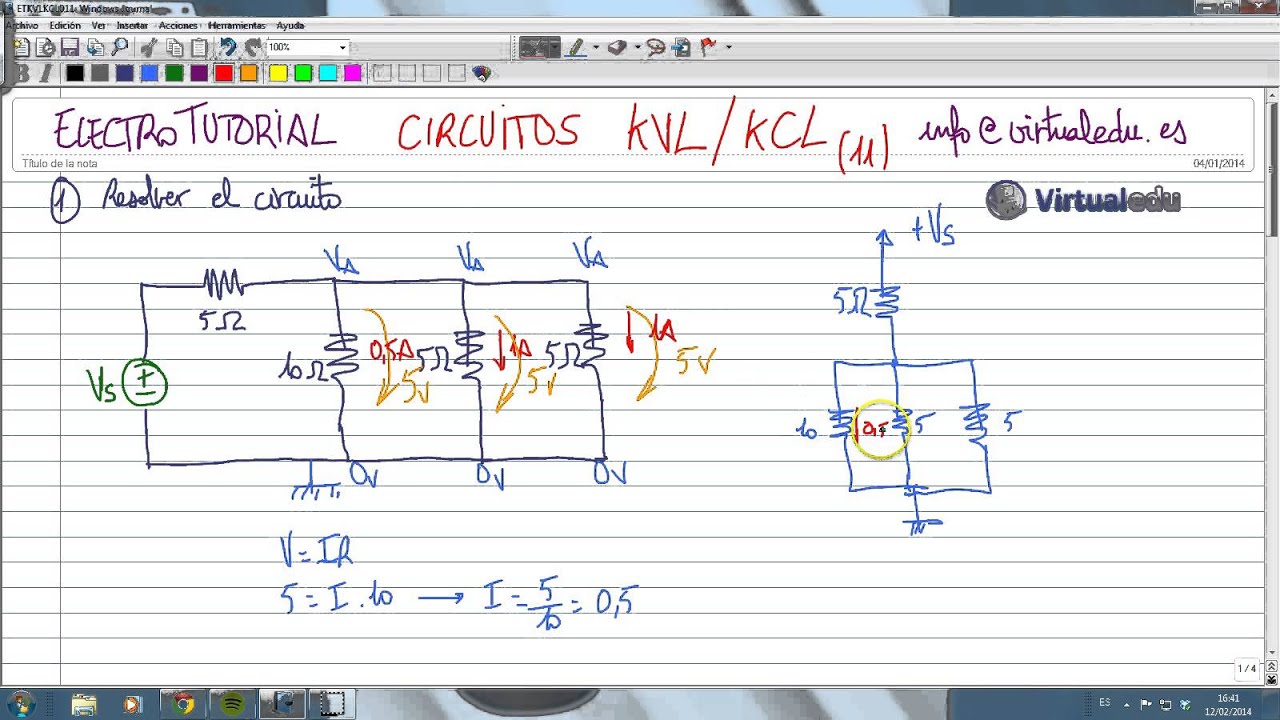 ETKVLKCL011 - Windows Journal
Archivo Edición Ver Insertar Acciones Herramientas Ayuda
100%
B I
ELECTROTUTORIAL CIRCUITOS KVL/KCL (11) info@virtualedu.es
Título de la nota
04/01/2014
1 Resolver el circuito
Virtualedu
+Vs
VA VA VA
5Ω
5Ω
Vs
10Ω 0,5A 5V
5Ω 1A 5V
5Ω 1A 5V
10 0,5 5 5
0V 0V 0V
V=IR
5=I.10 → I=5/10=0,5
1 / 4
ES
16:41
12/02/2014